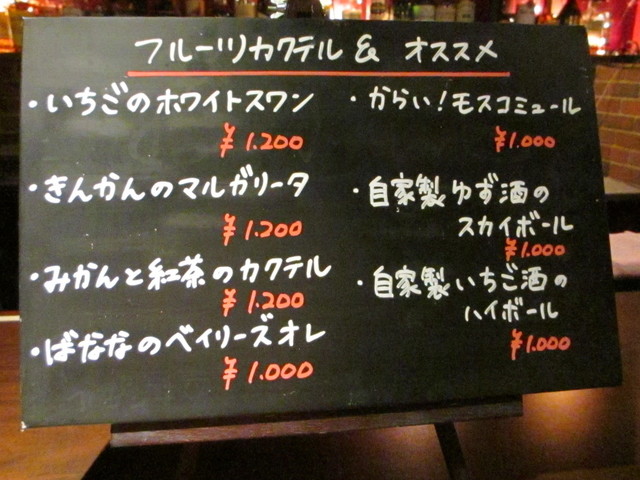 フルーツカクテル & オススメ
・いちごのホワイトスワン
¥1.200
・きんかんのマルガリータ
¥1.200
・みかんと紅茶のカクテル
¥1.200
・ばななのベイリーズオレ
¥1.000
・からい!モスコミュール
¥1.000
・自家製ゆず酒の
スカイボール
¥1.000
・自家製いちご酒の
ハイボール
¥1.000